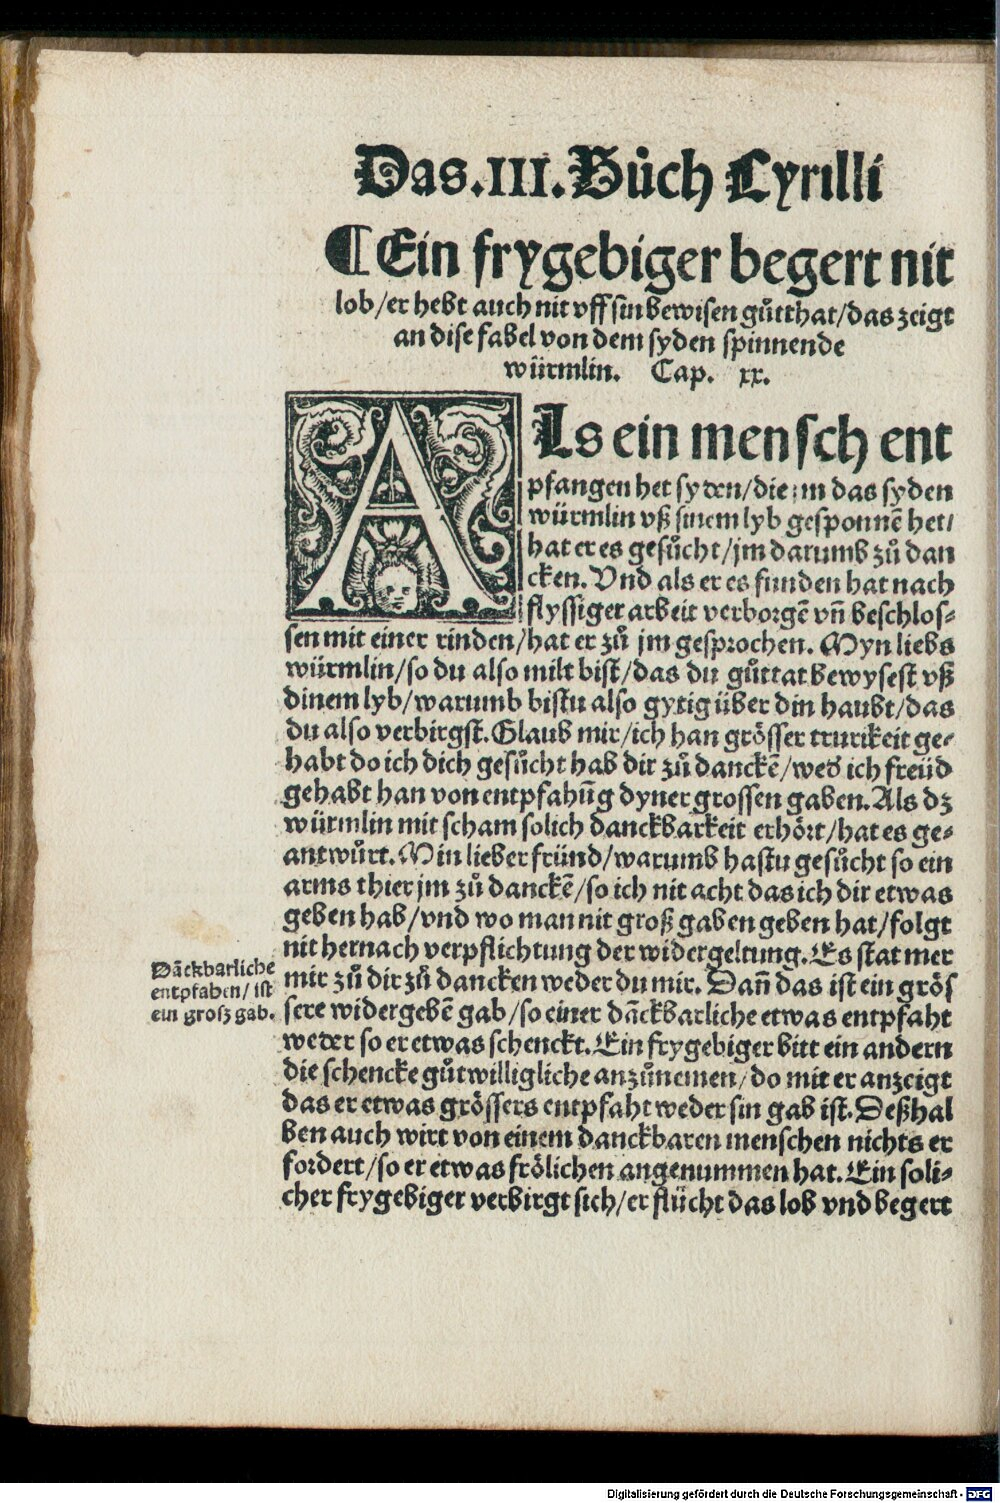 Das .III. Bůch Cyrilli
¶ Ein frygebiger begert nit
lob/er hebt auch nit vff sin bewisen gůtthat/das zeigt
an dise fabel von dem syden spinnende
würmlin. Cap. xx.
Als ein mensch ent
pfangen het syden/die im das syden
würmlin vß sinem lyb gesponnē het/
hat er es gesůcht/jm darumb zů dan
cken. Vnd als er es funden hat nach
flyssiger arbeit verborgē vñ beschlos-
sen mit einer rinden/hat er zů jm gesprochen. Myn liebs
würmlin/so du also milt bist/das du gůttat bewysest vß
dinem lyb/warumb bistu also gytig über din haubt/das
du also verbirgst. Glaub mir/ich han grösser trurikeit ge-
habt do ich dich gesůcht hab dir zů danckē/wed ich freüd
gehabt han von entpfahūg dyner grossen gaben. Als dz
würmlin mit scham solich danckbarkeit erhört/hat es ge-
antwůrt. Min lieber fründ/warumb hastu gesůcht so ein
arms thier jm zů danckē/so ich nit acht das ich dir etwas
geben hab/vnd wo man nit groß gaben geben hat/folgt
nit hernach verpflichtung der widergeltung. Es stat mer
mir zů dir zů dancken weder du mir. Dañ das ist ein grös
sere widergebē gab/so einer dāckbarliche etwas entpfaht
weder so er etwas schenckt. Ein frygebiger bitt ein andern
die schencke gůtwilligliche anzůnemen/do mit er anzeigt
das er etwas grössers entpfaht weder sin gab ist. Deßhal
ben auch wirt von einem danckbaren menschen nichts er
fordert/so er etwas frölichen angenummen hat. Ein soli-
cher frygebiger verbirgt sich/er flücht das lob vnd begert
Dāckbarliche
entpfahen/ist
ein grosz gab.
Digitalisierung gefördert durch die Deutsche Forschungsgemeinschaft - DFG